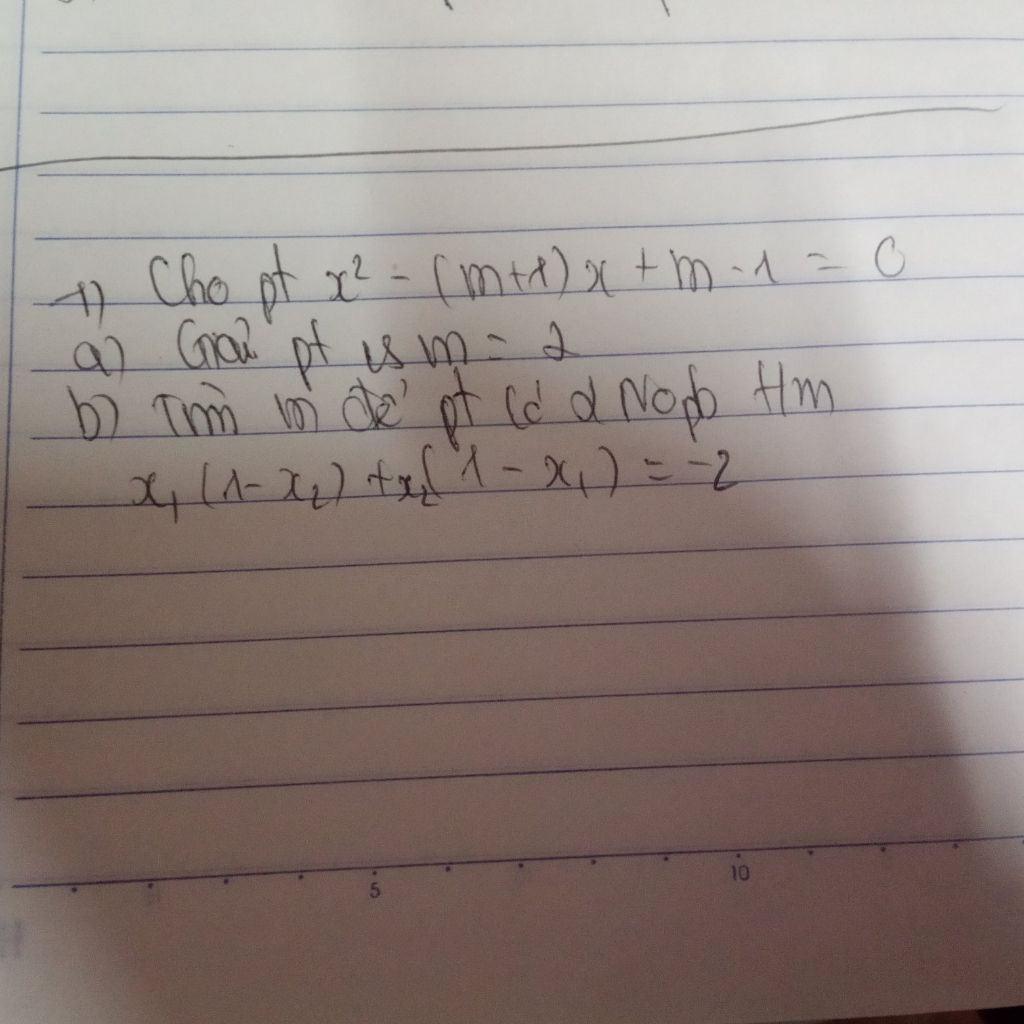 1) Cho pt x² - (m+1)x + m - 1 = 0
a) Giải pt vs m = 2
b) Tìm m để pt có 2 No pb t/m
x₁ (1 - x₂) + x₂ (1 - x₁) = -2
5 10